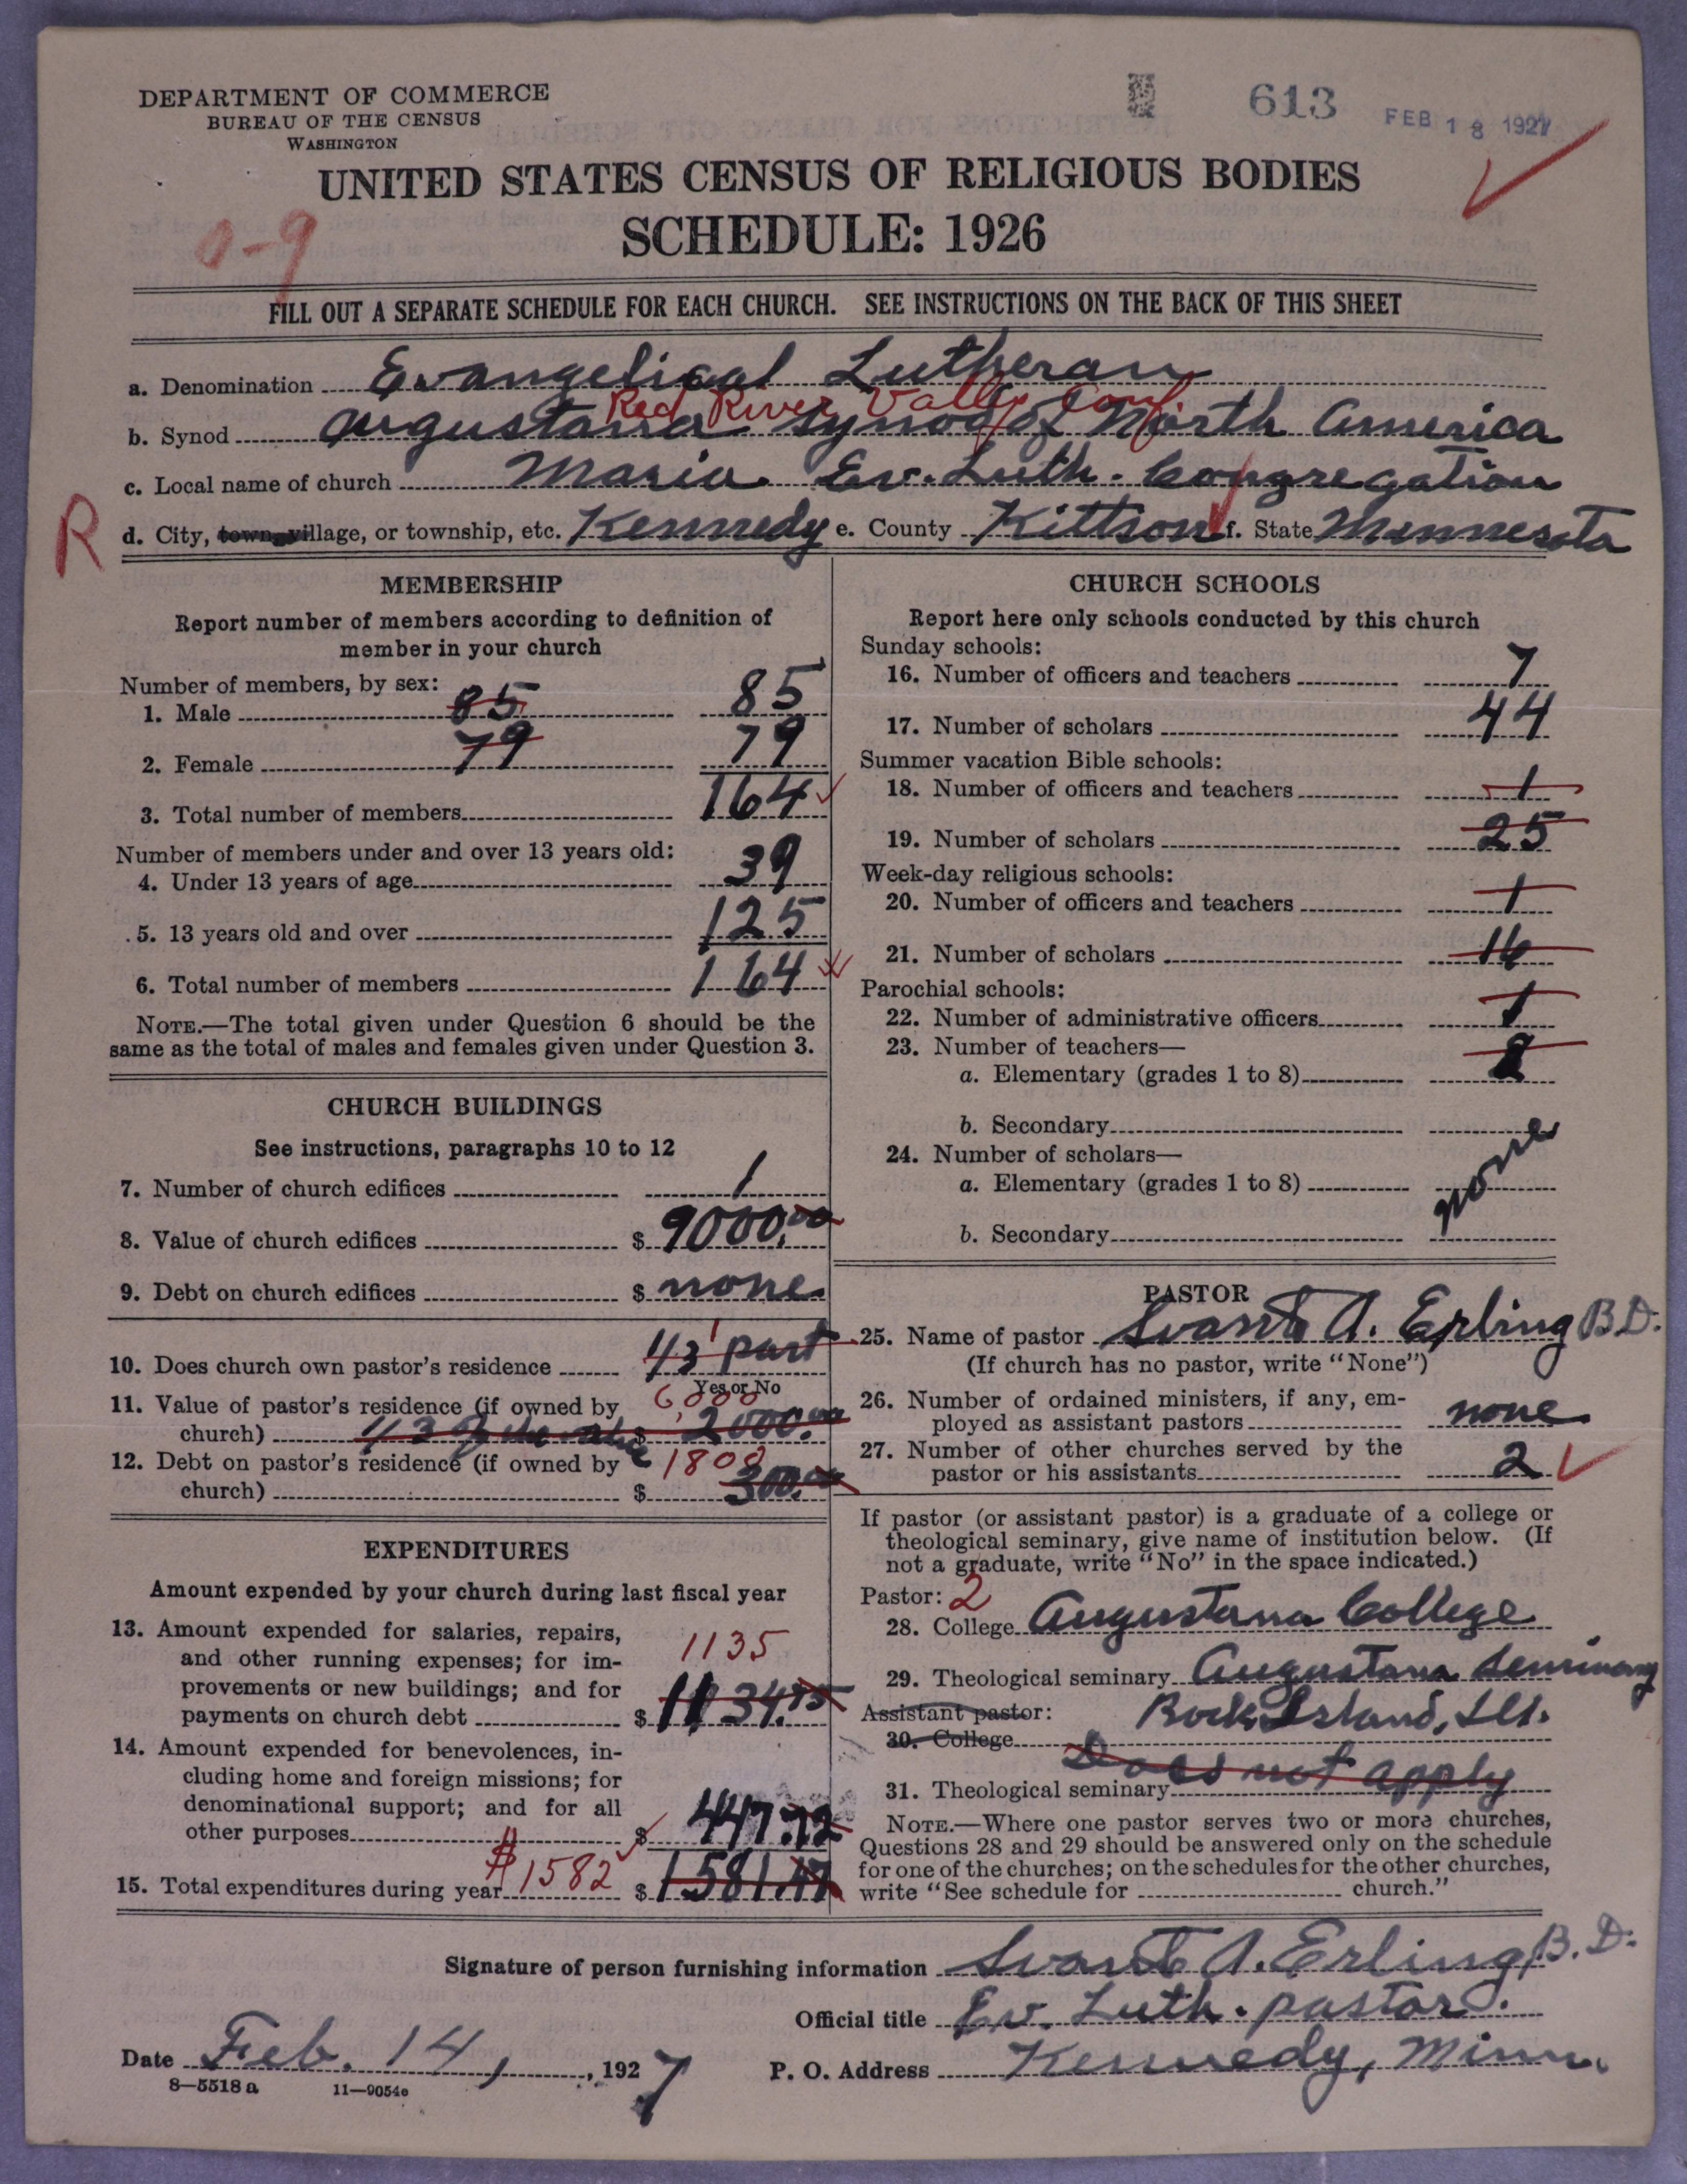 DEPARTMENT OF COMMERCE
BUREAU OF THE CENSUS
WASHINGTON
613
FEB 18 1927
UNITED STATES CENSUS OF RELIGIOUS BODIES
SCHEDULE: 1926
0-9
FILL OUT A SEPARATE SCHEDULE FOR EACH CHURCH. SEE INSTRUCTIONS ON THE BACK OF THIS SHEET
a. Denomination Evangelical Lutheran
Red River Valley Conf
b. Synod Augustana Synod of North America
c. Local name of church Maria Ev. Luth. Congregation
R
d. City, town, village, or township, etc. Kennedy e. County Kittson f. State Minnesota
MEMBERSHIP
Report number of members according to definition of
member in your church
Number of members, by sex:
1. Male 85 85
2. Female 79 79
3. Total number of members 164
Number of members under and over 13 years old:
4. Under 13 years of age 39
5. 13 years old and over 125
6. Total number of members 164
NOTE.—The total given under Question 6 should be the
same as the total of males and females given under Question 3.
CHURCH BUILDINGS
See instructions, paragraphs 10 to 12
7. Number of church edifices 1
8. Value of church edifices $ 9000.00
9. Debt on church edifices $ none
1
10. Does church own pastor's residence 1/3 part
Yes or No
11. Value of pastor's residence (if owned by 6,000
church) 1/3 of the value $ 2000.00
12. Debt on pastor's residence (if owned by 1800
church) $ 300.00
EXPENDITURES
Amount expended by your church during last fiscal year
13. Amount expended for salaries, repairs,
and other running expenses; for im- 1135
provements or new buildings; and for
payments on church debt $ 1134.75
14. Amount expended for benevolences, in-
cluding home and foreign missions; for
denominational support; and for all
other purposes $ 447.72
15. Total expenditures during year $1582 $ 1581.47
CHURCH SCHOOLS
Report here only schools conducted by this church
Sunday schools:
16. Number of officers and teachers 7
17. Number of scholars 44
Summer vacation Bible schools:
18. Number of officers and teachers 1
19. Number of scholars 25
Week-day religious schools:
20. Number of officers and teachers 1
21. Number of scholars 16
Parochial schools:
22. Number of administrative officers 1
23. Number of teachers—
a. Elementary (grades 1 to 8)
b. Secondary
24. Number of scholars—
a. Elementary (grades 1 to 8) none
b. Secondary
PASTOR
25. Name of pastor Svante A. Erling B.D.
(If church has no pastor, write "None")
26. Number of ordained ministers, if any, em-
ployed as assistant pastors none
27. Number of other churches served by the
pastor or his assistants 2
If pastor (or assistant pastor) is a graduate of a college or
theological seminary, give name of institution below. (If
not a graduate, write "No" in the space indicated.)
Pastor: 2
28. College Augustana College
29. Theological seminary Augustana Seminary
Assistant pastor: Rock Island, Ill.
30. College
Does not apply
31. Theological seminary
NOTE.—Where one pastor serves two or more churches,
Questions 28 and 29 should be answered only on the schedule
for one of the churches; on the schedules for the other churches,
write "See schedule for church."
Signature of person furnishing information Svante A. Erling, B.D.
Official title Ev. Luth. pastor.
Date Feb. 14, 1927 P. O. Address Kennedy, Minn.
8—5518 a 11—9054e